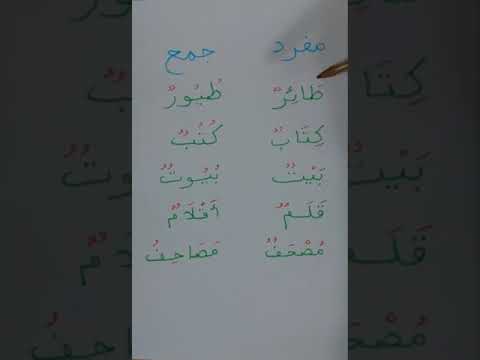 مفرد جمع
طَائِرٌ طُيُورٌ
كِتَابٌ كُتُبٌ
بَيْتٌ بُيُوتٌ
قَلَمٌ أَقْلَامٌ
مُصْحَفٌ مَصَاحِفُ